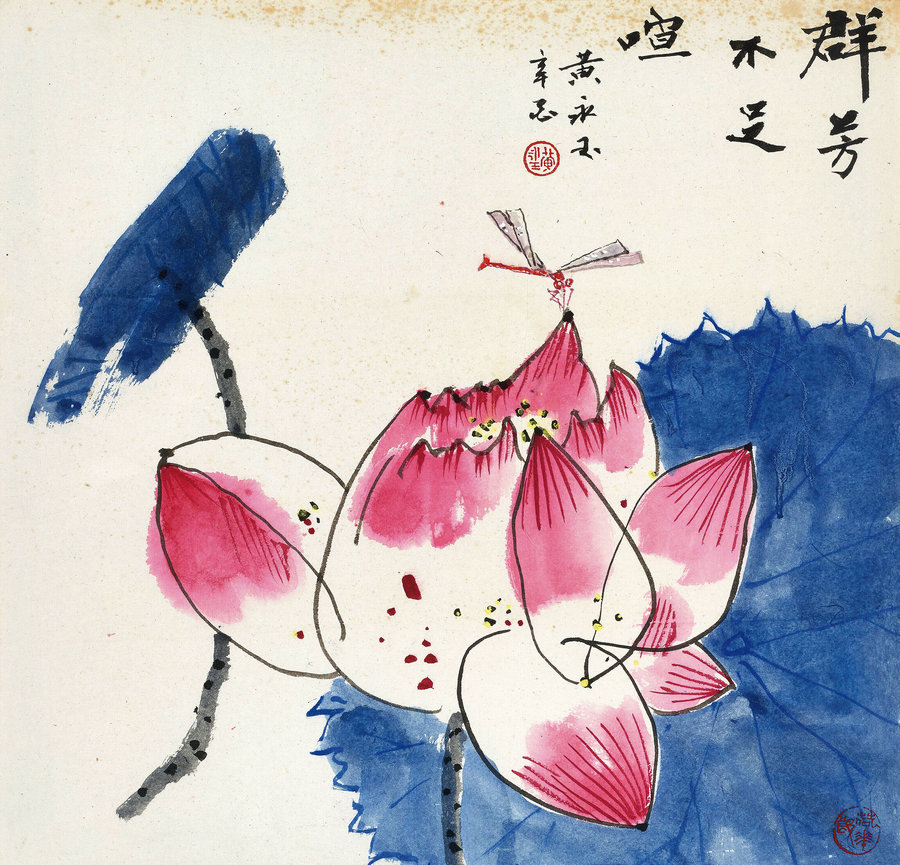 群芳
不足
喧
黄永玉
辛